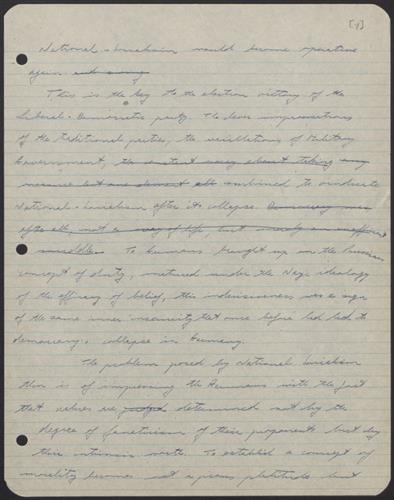 [4]
National-Socialism would become operative
again and
This is the key to the election victory of the
Liberal-Democratic party. The
of the traditional parties, the vacillations of Military
Government, the constant worry about taking any
measure but an almost all combined to vindicate
National-Socialism after its collapse. Democracy was
after all, not a way of life, but merely an inefficient
muddle. To Germans brought up on the Prussian
concept of duty, nurtured under the Nazi ideology
of the efficacy of belief, this indecisiveness was a sign
of the same inner insecurity that once before had led to
democracy's collapse in Germany.
The problem posed by National Socialism
then is of impressing the Germans with the fact
that values are judged determined not by the
degree of fanaticism of their proponents but by
their intrinsic worth. To establish a concept of
morality becomes not a pious platitude but